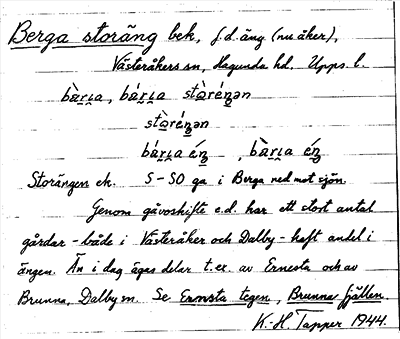 Berga storäng bek, f.d. äng (nu åker),
Västeråkers sn, Hagunda hd, Upps. l.
bàrɩa, bárɩa stòrénən
stòrénən
bárɩa én, bàrɩa én
Storängen ek. S-SO ga i Berga ned mot sjön.
Genom gåvoskifte e.d. har ett stort antal
gårdar - både i Västeråker och Dalby - haft andel i
ängen. Än i dag äges delar t.ex. av Ernesta och av
Brunna, Dalby sn. Se Ernsta tegen, Brunna fjällen.
K.-H. Tapper 1944.